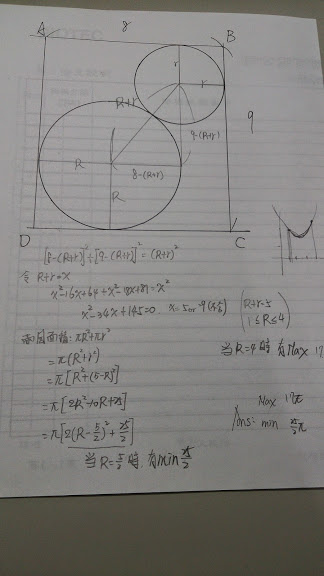 A 8 B
r
r
R+r
9-(R+r)
9
R 8-(R+r)
R
D C
[8-(R+r)]²+[9-(R+r)]²=(R+r)²
令 R+r=x
x²-16x+64+x²-18x+81=x²
x²-34x+145=0. x=5 or 29(不合)
R+r=5
1≤R≤4
兩圓面積:πR²+πr²
=π(R²+r²)
=π[R²+(5-R)²]
=π[2R²-10R+25]
=π[2(R-5/2)²+25/2]
當R=5/2時,有min 25/2
當R=4時 有Max 17
Max 17π
Ans: min 25/2π